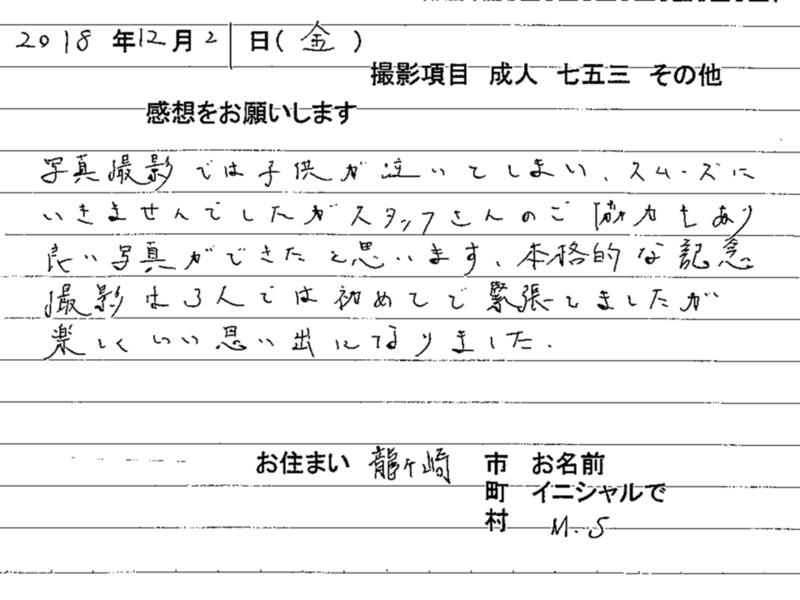 2018 年12月21日(金)
撮影項目 成人 七五三 その他
感想をお願いします
写真撮影では子供が泣いてしまい、スムーズに
いきませんでしたがスタッフさんのご協力もあり
良い写真ができたと思います、本格的な記念
撮影は3人では初めてで緊張してましたが
楽しくいい思い出になりました.
お住まい 龍ヶ崎 市 お名前
町 イニシャルで
村 M.S